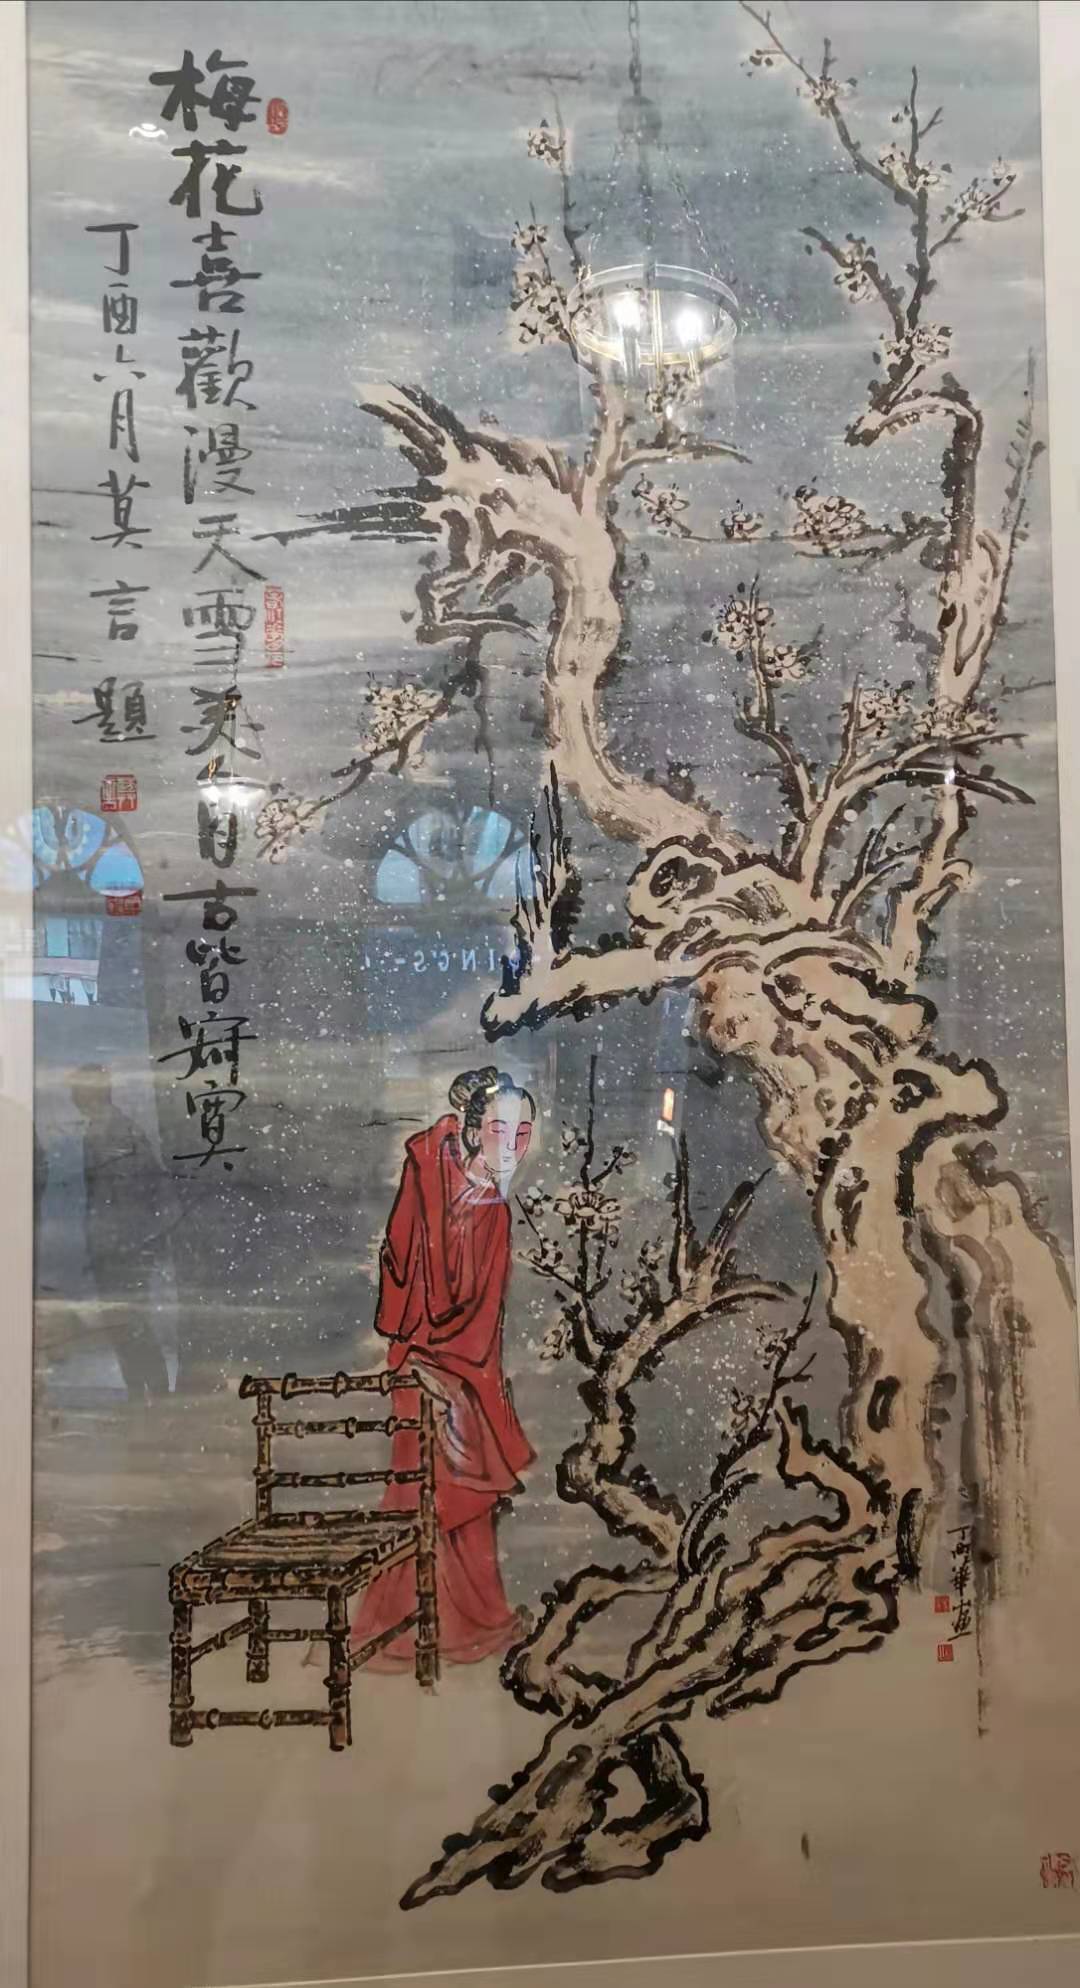 梅花喜歡漫天雪美人自古皆寂寞
丁酉六月莫言題
丁酉華畫